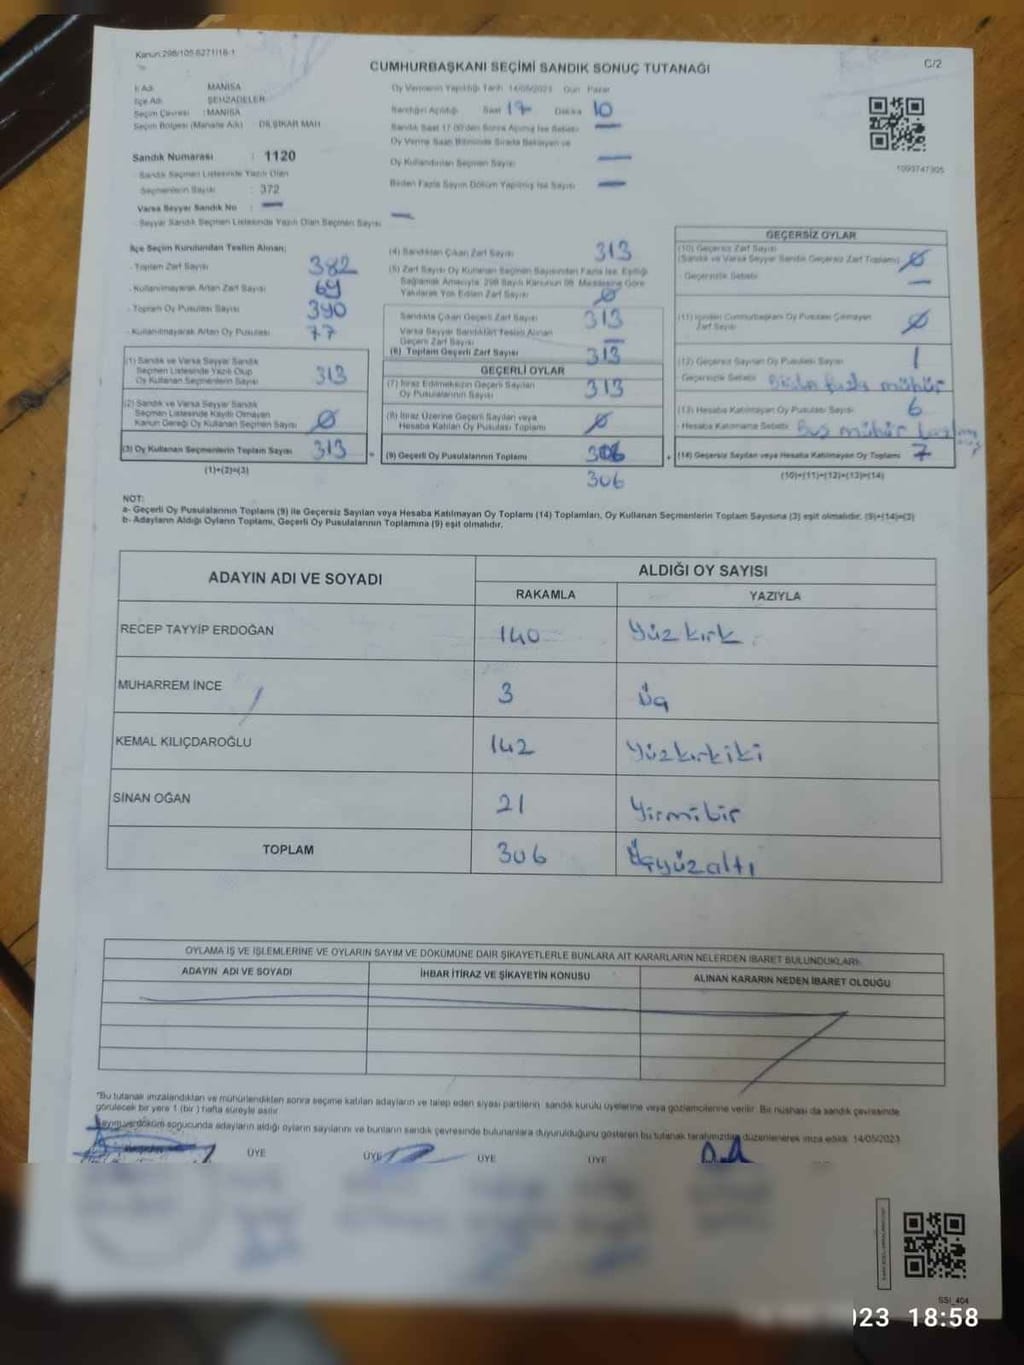 Kanun:298/105-6271/18-1
CUMHURBAŞKANI SEÇİMİ SANDIK SONUÇ TUTANAĞI
C/2
İl Adı MANİSA
İlçe Adı ŞEHZADELER
Seçim Çevresi : MANİSA
Seçim Bölgesi (Mahalle Adı) DİLŞİKAR MAH.
Oy Vermenin Yapıldığı Tarih 14/05/2023 Gün Pazar
Sandığın Açıldığı Saat 17 Dakika 10
Sandık Saat 17.00'den Sonra Açılmış İse Sebebi —
Oy Verme Saati Bitiminde Sırada Bekleyen ve
Oy Kullandırılan Seçmen Sayısı —
Birden Fazla Sayım Döküm Yapılmış İse Sayısı —
1093747305
Sandık Numarası : 1120
Sandık Seçmen Listesinde Yazılı Olan
Seçmenlerin Sayısı : 372
Varsa Seyyar Sandık No : —
- Seyyar Sandık Seçmen Listesinde Yazılı Olan Seçmen Sayısı —
İlçe Seçim Kurulundan Teslim Alınan;
- Toplam Zarf Sayısı 382
- Kullanılmayarak Artan Zarf Sayısı 69
- Toplam Oy Pusulası Sayısı 390
- Kullanılmayarak Artan Oy Pusulası 77
(1) Sandık ve Varsa Seyyar Sandık
Seçmen Listesinde Yazılı Olup
Oy Kullanan Seçmenlerin Sayısı 313
(2) Sandık ve Varsa Seyyar Sandık
Seçmen Listesinde Kayıtlı Olmayan
Kanun Gereği Oy Kullanan Seçmen Sayısı Ø
(3) Oy Kullanan Seçmenlerin Toplam Sayısı 313
(1)+(2)=(3)
(4) Sandıktan Çıkan Zarf Sayısı 313
(5) Zarf Sayısı Oy Kullanan Seçmen Sayısından Fazla İse, Eşitliği
Sağlamak Amacıyla, 298 Sayılı Kanunun 98. Maddesine Göre
Yakılarak Yok Edilen Zarf Sayısı Ø
Sandıkta Çıkan Geçerli Zarf Sayısı 313
Varsa Seyyar Sandıktan Teslim Alınan
Geçerli Zarf Sayısı —
(6) Toplam Geçerli Zarf Sayısı 313
GEÇERLİ OYLAR
(7) İtiraz Edilmeksizin Geçerli Sayılan
Oy Pusulalarının Sayısı 313
(8) İtiraz Üzerine Geçerli Sayılan veya
Hesaba Katılan Oy Pusulası Toplamı Ø
(9) Geçerli Oy Pusulalarının Toplamı 306
306
GEÇERSİZ OYLAR
(10) Geçersiz Zarf Sayısı
(Sandık ve Varsa Seyyar Sandık Geçersiz Zarf Toplamı) Ø
- Geçersizlik Sebebi —
(11) İçinden Cumhurbaşkanı Oy Pusulası Çıkmayan
Zarf Sayısı Ø
(12) Geçersiz Sayılan Oy Pusulası Sayısı 1
- Geçersizlik Sebebi fazla mühür
(13) Hesaba Katılmayan Oy Pusulası Sayısı 6
- Hesaba Katılmama Sebebi Boş mühür
(14) Geçersiz Sayılan veya Hesaba Katılmayan Oy Toplamı 7
(10)+(11)+(12)+(13)=(14)
NOT:
a- Geçerli Oy Pusulalarının Toplamı (9) ile Geçersiz Sayılan veya Hesaba Katılmayan Oy Toplamı (14) Toplamları, Oy Kullanan Seçmenlerin Toplam Sayısına (3) eşit olmalıdır. (9)+(14)=(3)
b- Adayların Aldığı Oyların Toplamı, Geçerli Oy Pusulalarının Toplamına (9) eşit olmalıdır.
ADAYIN ADI VE SOYADI ALDIĞI OY SAYISI
RAKAMLA YAZIYLA
RECEP TAYYİP ERDOĞAN 140 Yüzkırk
MUHARREM İNCE 3 Üç
KEMAL KILIÇDAROĞLU 142 Yüzkırkiki
SİNAN OĞAN 21 Yirmibir
TOPLAM 306 Üçyüzaltı
OYLAMA İŞ VE İŞLEMLERİNE VE OYLARIN SAYIM VE DÖKÜMÜNE DAİR ŞİKAYETLERLE BUNLARA AİT KARARLARIN NELERDEN İBARET BULUNDUKLARI:
ADAYIN ADI VE SOYADI İHBAR İTİRAZ VE ŞİKAYETİN KONUSU ALINAN KARARIN NEDEN İBARET OLDUĞU
"Bu tutanak imzalandıktan ve mühürlendikten sonra seçime katılan adayların ve talep eden siyasi partilerin sandık kurulu üyelerine veya gözlemcilerine verilir. Bir nüshası da sandık çevresinde
görülecek bir yere 1 (bir ) hafta süreyle asılır.
Sayım ve döküm sonucunda adayların aldığı oyların sayılarını ve bunların sandık çevresinde bulunanlara duyurulduğunu gösteren bu tutanak tarafımızdan düzenlenerek imza edildi. 14/05/2023
ÜYE ÜYE ÜYE ÜYE
SSI_404
023 18:58